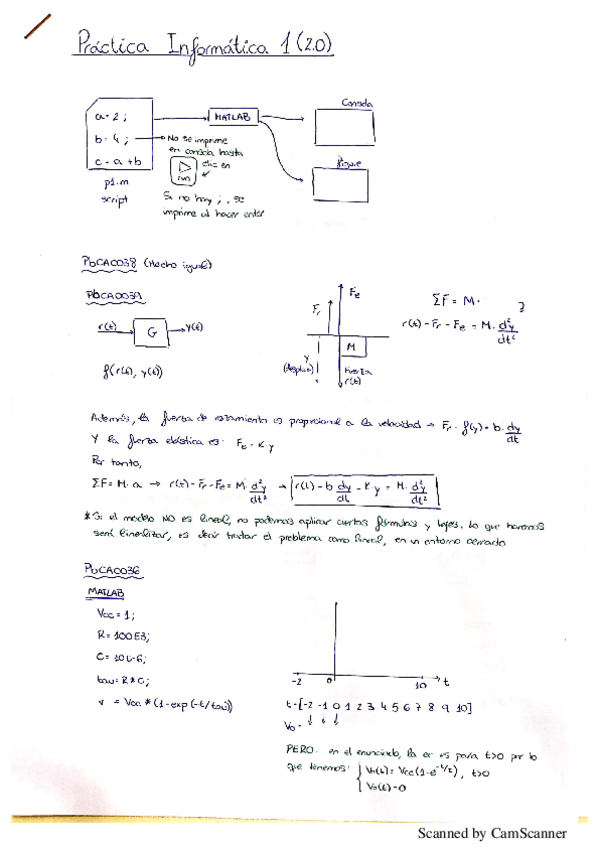 Práctica Informática 1 (2.0)
a = 2 ;
b = 4 ;
c = a + b
p1.m
script
MATLAB
Consola
No se imprime
en consola hasta
clic en
run
Si no hay ; , se
imprime al hacer enter
PbCAC038 (Hecho igual)
PbCAC039
r(t) G y(t)
f(r(t), y(t))
Fr Fe
M
y
Fuerza
r(t)
ΣF = M ·
r(t) - Fr - Fe = M · d²y/dt²
Además, la fuerza de rozamiento es proporcional a la velocidad → Fr = f(y) = b · dy/dt
Y la fuerza elástica es: Fe = K · y
Por tanto,
ΣF = M · a → r(t) - Fr - Fe = M · d²y/dt² → r(t) - b dy/dt - K y = M · d²y/dt²
* Si el modelo NO es lineal, no podemos aplicar ciertas fórmulas y leyes, lo que haremos
será linealizar, es decir tratar el problema como lineal, en un entorno cerrado
PbCAC036
MATLAB
Vcc = 1 ;
R = 100E3;
C = 10E-6;
tau = R * C;
v = Vcc * (1 - exp(-t/tau))
-2 0 10 t
t = [-2 -1 0 1 2 3 4 5 6 7 8 9 10]
Vo =
PERO: en el enunciado, la ec es para t>0 por lo
que tenemos: Vo(t) = Vcc (1 - e^-t/τ), t>0
Vo(t) = 0
Scanned by CamScanner